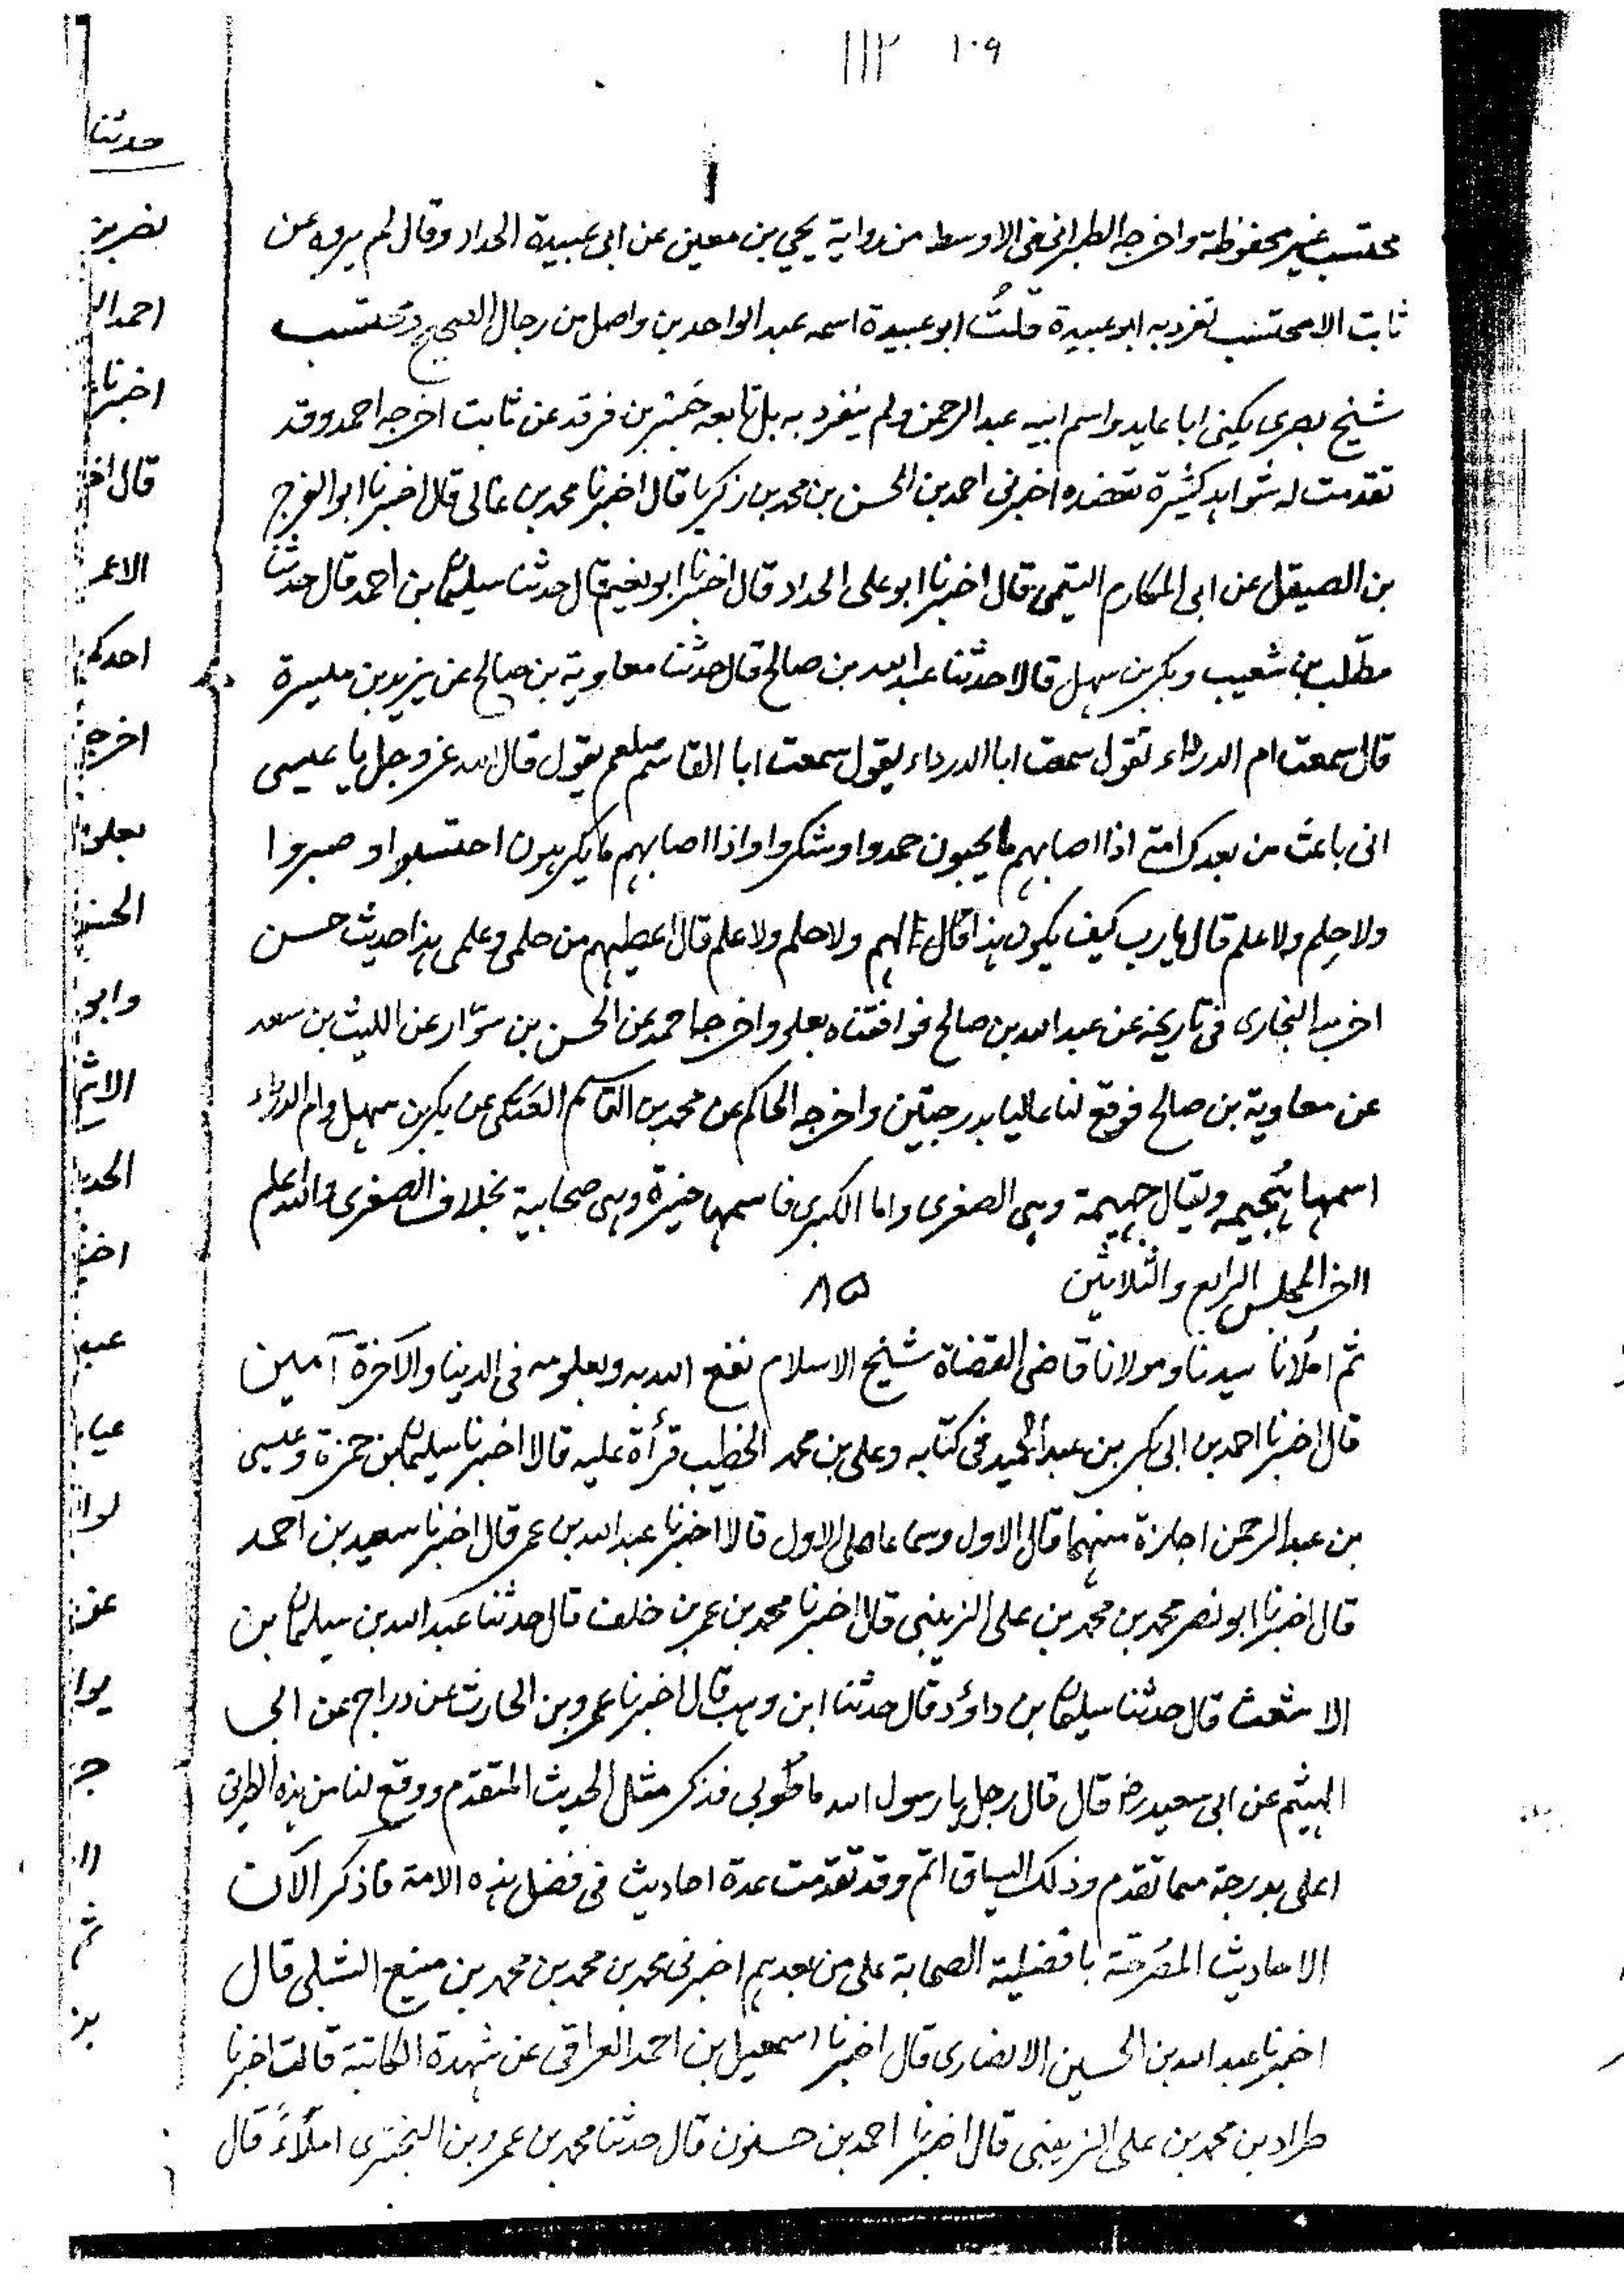 ١٠٩ ١١٢
حدثنا
محتسب غير محفوظة واخرجه الطبرانى فى الاوسط من رواية يحيى بن معين عن ابى عبيدة الحداد وقال لم يروه عن
ثابت الا محتسب تفرد به ابو عبيدة قلتُ ابو عبيدة اسمه عبد الواحد بن واصل من رجال الصحيح ومحتسب
شيخ بصرى يكنى ابا عايد واسم ابيه عبد الرحمن ولم ينفرد به بل تابعه جَسْر بن فرقد عن ثابت اخرجه احمد وقد
تقدمت له شواهد كثيرة تعضده اخبرنى احمد بن الحسن بن محمد بن زكريا قال اخبرنا محمد بن غالى قال اخبرنا ابو الفرج
بن الصيقل عن ابى المكارم التيمى قال اخبرنا ابو على الحداد قال اخبرنا ابو نعيم قال حدثنا سليمان بن احمد قال حدثنا
مطّلب بن شعيب وبكر بن سهل قالا حدثنا عبد الله بن صالح قال حدثنا معاوية بن صالح عن يزيد بن ميسرة
قال سمعت ام الدرداء تقول سمعت ابا الدرداء يقول سمعت ابا القاسم صلعم يقول قال الله عز وجل يا عيسى
انى باعث من بعدك امة اذا اصابهم ما يحبون حمدوا وشكروا واذا اصابهم ما يكرهون احتسبوا وصبروا
ولا حِلم ولا علم قال يا رب كيف يكون هذا قال لهم ولا حلم ولا علم قال اعطيهم من حلمى وعلمى هذا حديث حسن
اخرجه البخارى فى تاريخه عن عبد الله بن صالح فوافقناه بعلو واخرجه احمد عن الحسن بن سوّار عن الليث بن سعد
عن معاوية بن صالح فوقع لنا عاليا بدرجتين واخرجه الحاكم عن محمد بن القاسم العَتَكى عن بكر بن سهل وام الدرداء
اسمها هُجيمة ويقال جهيمة وهى الصغرى واما الكبرى فاسمها خيرة وهى صحابية بخلاف الصغرى والله اعلم
اخر المجلس الرابع والثلاثين ٨٥
ثم املأنا سيدنا ومولانا قاضى القضاة شيخ الاسلام نفع الله به وبعلومه فى الدنيا والآخرة آمين
قال اخبرنا احمد بن ابى بكر بن عبد الحميد فى كتابه وعلى بن محمد الخطيب قرأة عليه قالا اخبرنا سليمان بن حمزة وعيسى
بن عبد الرحمن اجازة منهما قال الاول وسماعا على الاول قالا اخبرنا عبد الله بن عمر قال اخبرنا سعيد بن احمد
قال اخبرنا ابو نصر محمد بن محمد بن على الزينبى قال اخبرنا محمد بن عمر بن خلف قال حدثنا عبد الله بن سليمان بن
الاشعث قال حدثنا سليمان بن داؤد قال حدثنا ابن وهب قال اخبرنا عمرو بن الحارث عن دراج عن ابى
الهيثم عن ابى سعيد رضـ قال قال رجل يا رسول الله ما طُوبى فذكر مثل الحديث المتقدم ووقع لنا من هذه الطريق
اعلى بدرجة مما تقدم وذلك السياق اتم وقد تقدمت عدة احاديث فى فضل هذه الامة فاذكر الآن
الاحاديث المصَرحة بافضلية الصحابة على من بعدهم اخبرنى محمد بن محمد بن محمد بن منيع الشبلى قال
اخبرنا عبد الله بن الحسين الانصارى قال اخبرنا اسمعيل بن احمد العراقى عن شهدة الكاتبة قالت اخبرنا
طراد بن محمد بن على الزينبى قال اخبرنا احمد بن حسنون قال حدثنا محمد بن عمرو بن البخترى املأءً قال